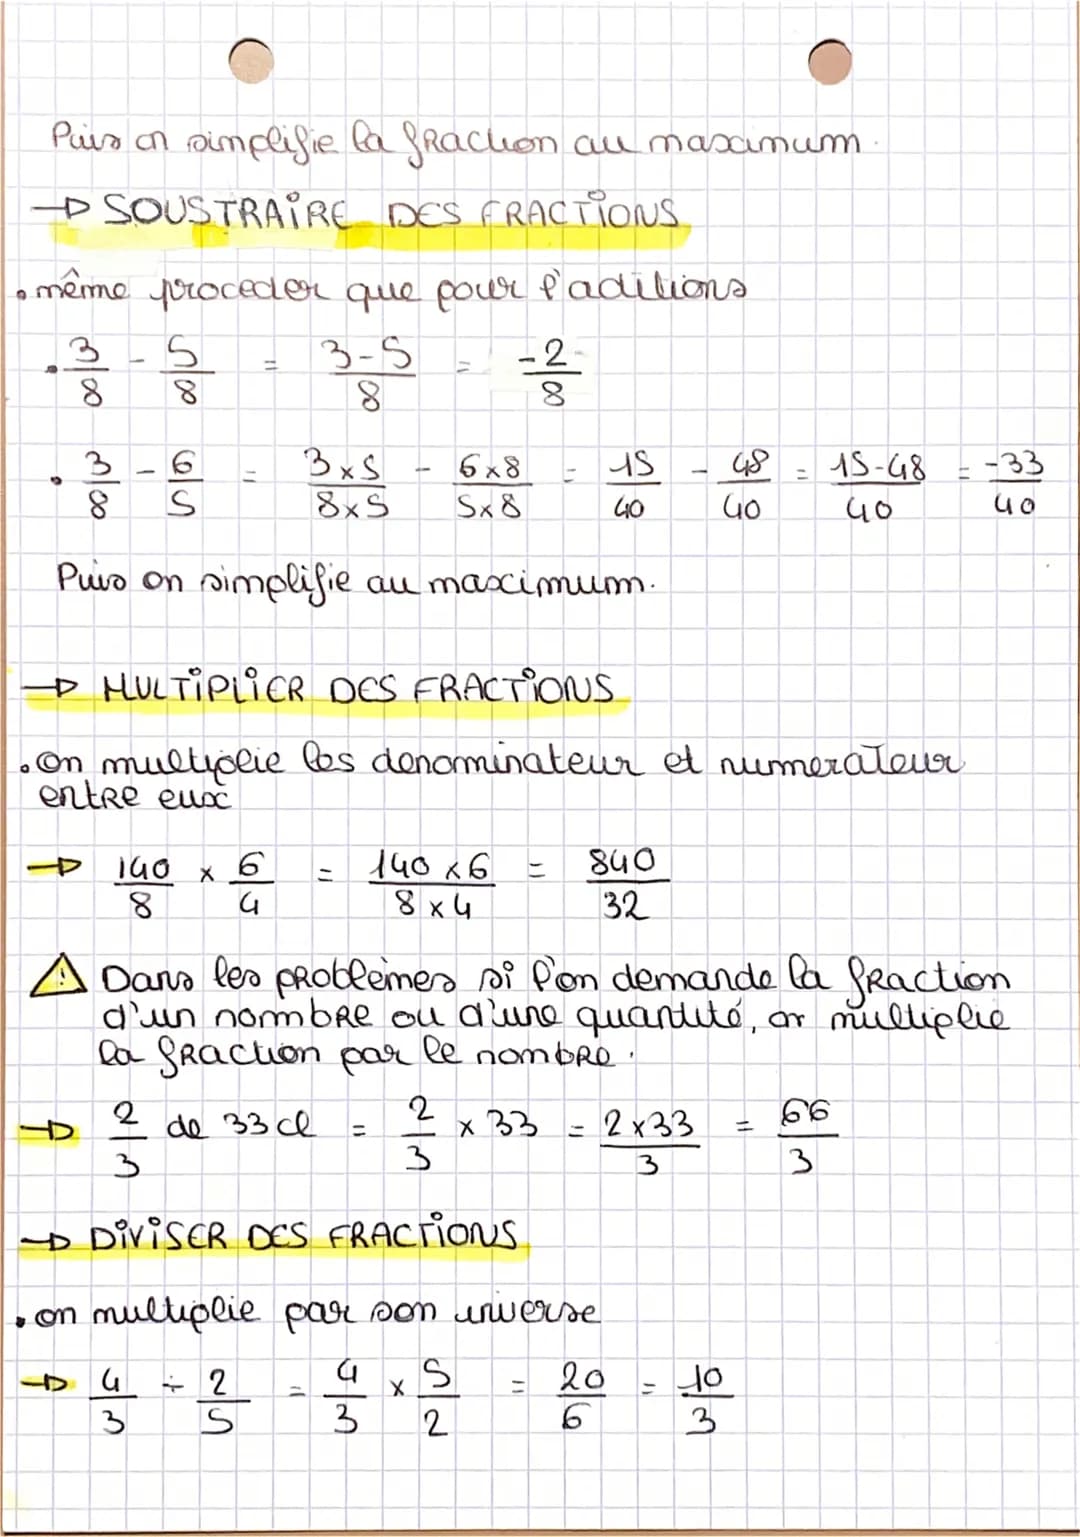 Puis on simplifie la fraction au maximum.
→ SOUSTRAIRE DES FRACTIONS
• même proceder que pour l'aditions
• 3/8 - 5/8 = 3-5/8 = -2/8
• 3/8 - 6/5 = 3x5/8x5 - 6x8/5x8 = 15/40 - 48/40 = 15-48/40 = -33/40
Puis on simplifie au maximum.
→ MULTIPLIER DES FRACTIONS
• On multiplie les denominateur et numerateur
entre eux
→ 140/8 x 6/4 = 140x6/8x4 = 840/32
⚠ Dans les problèmes si l'on demande la fraction
d'un nombre ou d'une quantité, on multiplie
la fraction par le nombre.
→ 2/3 de 33cl = 2/3 x 33 = 2x33/3 = 66/3
→ DIVISER DES FRACTIONS
• on multiplie par son inverse
→ 4/3 ÷ 2/5 = 4/3 x 5/2 = 20/6 = 10/3